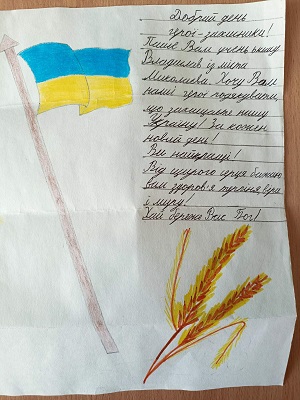 Добрий день
герої-захисники!
Пише Вам учень школи
Владислав із міста
Миколаєва. Хочу Вам
наші герої подякувати,
що захищаєте нашу
Україну! За кожен
новий день!
Ви найкращі!
Від щирого серця бажаю
Вам здоров'я
і миру!
Хай береже Вас Бог!